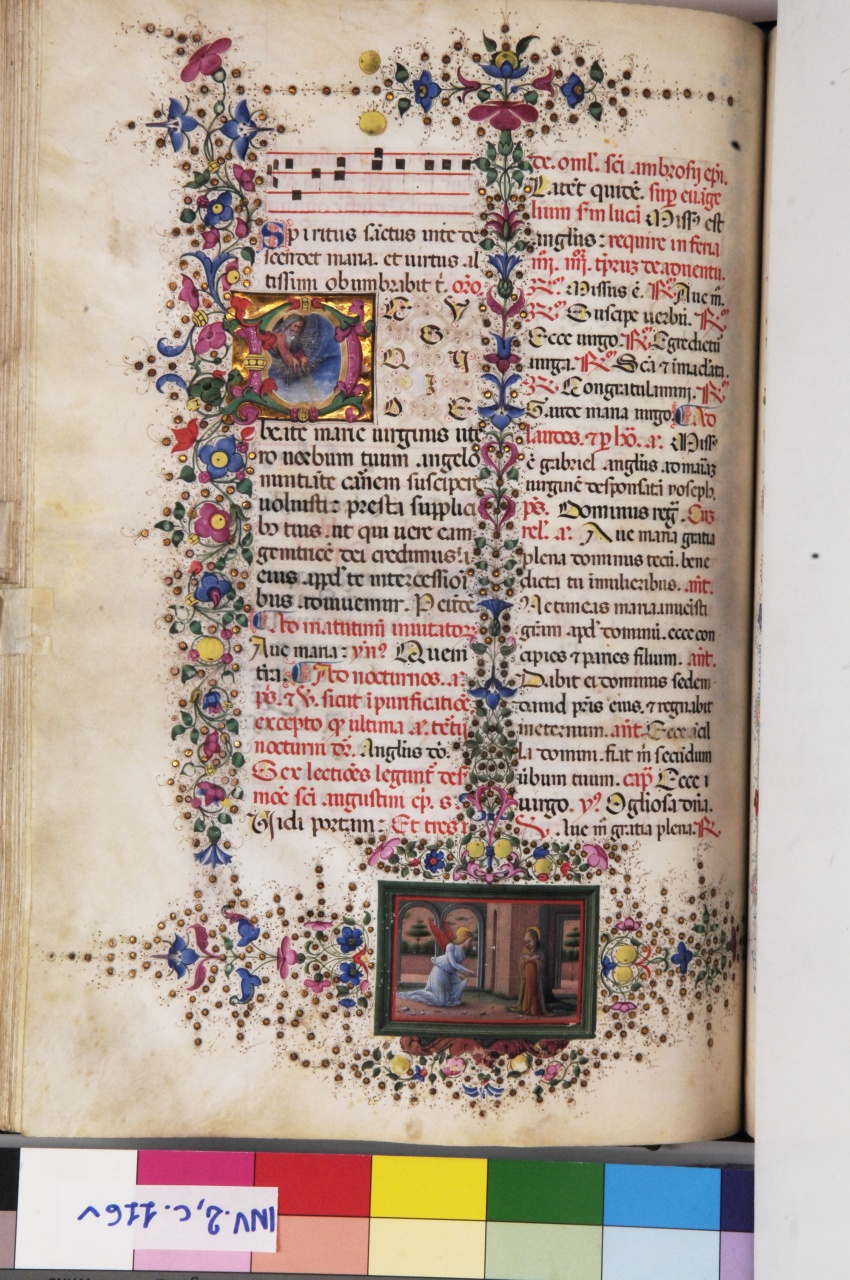 Spiritus sanctus in te de
scendet maria. et uirtus al
tissimi obumbrabit t̄. oro.
D E V
G
Q U
I
O E
beate marie uirginis ute
ro uerbum tuum angelo
nuntiāte carnem suscipere
uoluisti: presta supplici
bꝫ tuis. ut qui uere eam
genitricē dei credimus: i
eius apd̄ te intercessioī
bus adiuuemur. P eūdē
Ad matutinū inuitator
Aue maria: yn? Quem
tr̄a. Ad nocturnos. a.
pō. ⁊ V. sicut ī purificatiōe
excepto qꝫ ultima a. tertii
nocturni dr̄. Anglus dō.
Sex lectiōes legunt̄ de f
mōe sc̄i augustini ep̄. s.
Uidi portam: Et tres ī
de. oml̄. sc̄i ambrosij ep̄i.
Latet quidē. sup euāge
lium s̄m lucā Miss᷒ est
anglus: require in feria
iiij. iiij. tp̄ruz de aduentu.
R. Missus ē. R. Aue m̄.
R. Suscipe uerbū. R.
Ecce uirgo. R. Egredietur
uirga. R. Scā ⁊ īmaclata.
R. Congratulamini. R.
Gaude maria uirgo. Ad
laudes. ⁊ p hō. a. Miss᷒
ē gabriel anglus ad mariā
uirginē desponsatā yoseph.
ps̄. Dominus reg. Cuz
rel. a. Aue maria gratia
plena dominus tecū. bene
dicta tu ī mulieribus. ant̄.
Ne timeas maria inuenisti
gr̄am apd̄ dominū. ecce con
cipies ⁊ paries filium. ant̄.
Dabit ei dominus sedem
dauid pr̄is eius. ⁊ regnabit
in eternum. ant̄. Ecce ācil
la domini. fiat m̄ secūdum
ūbum tuum. cap̄ Ecce ī
uirgo. y? O gl̄iosa dn̄a.
V. Aue m̄ gratia plena. R
INV. 2, c. 116v